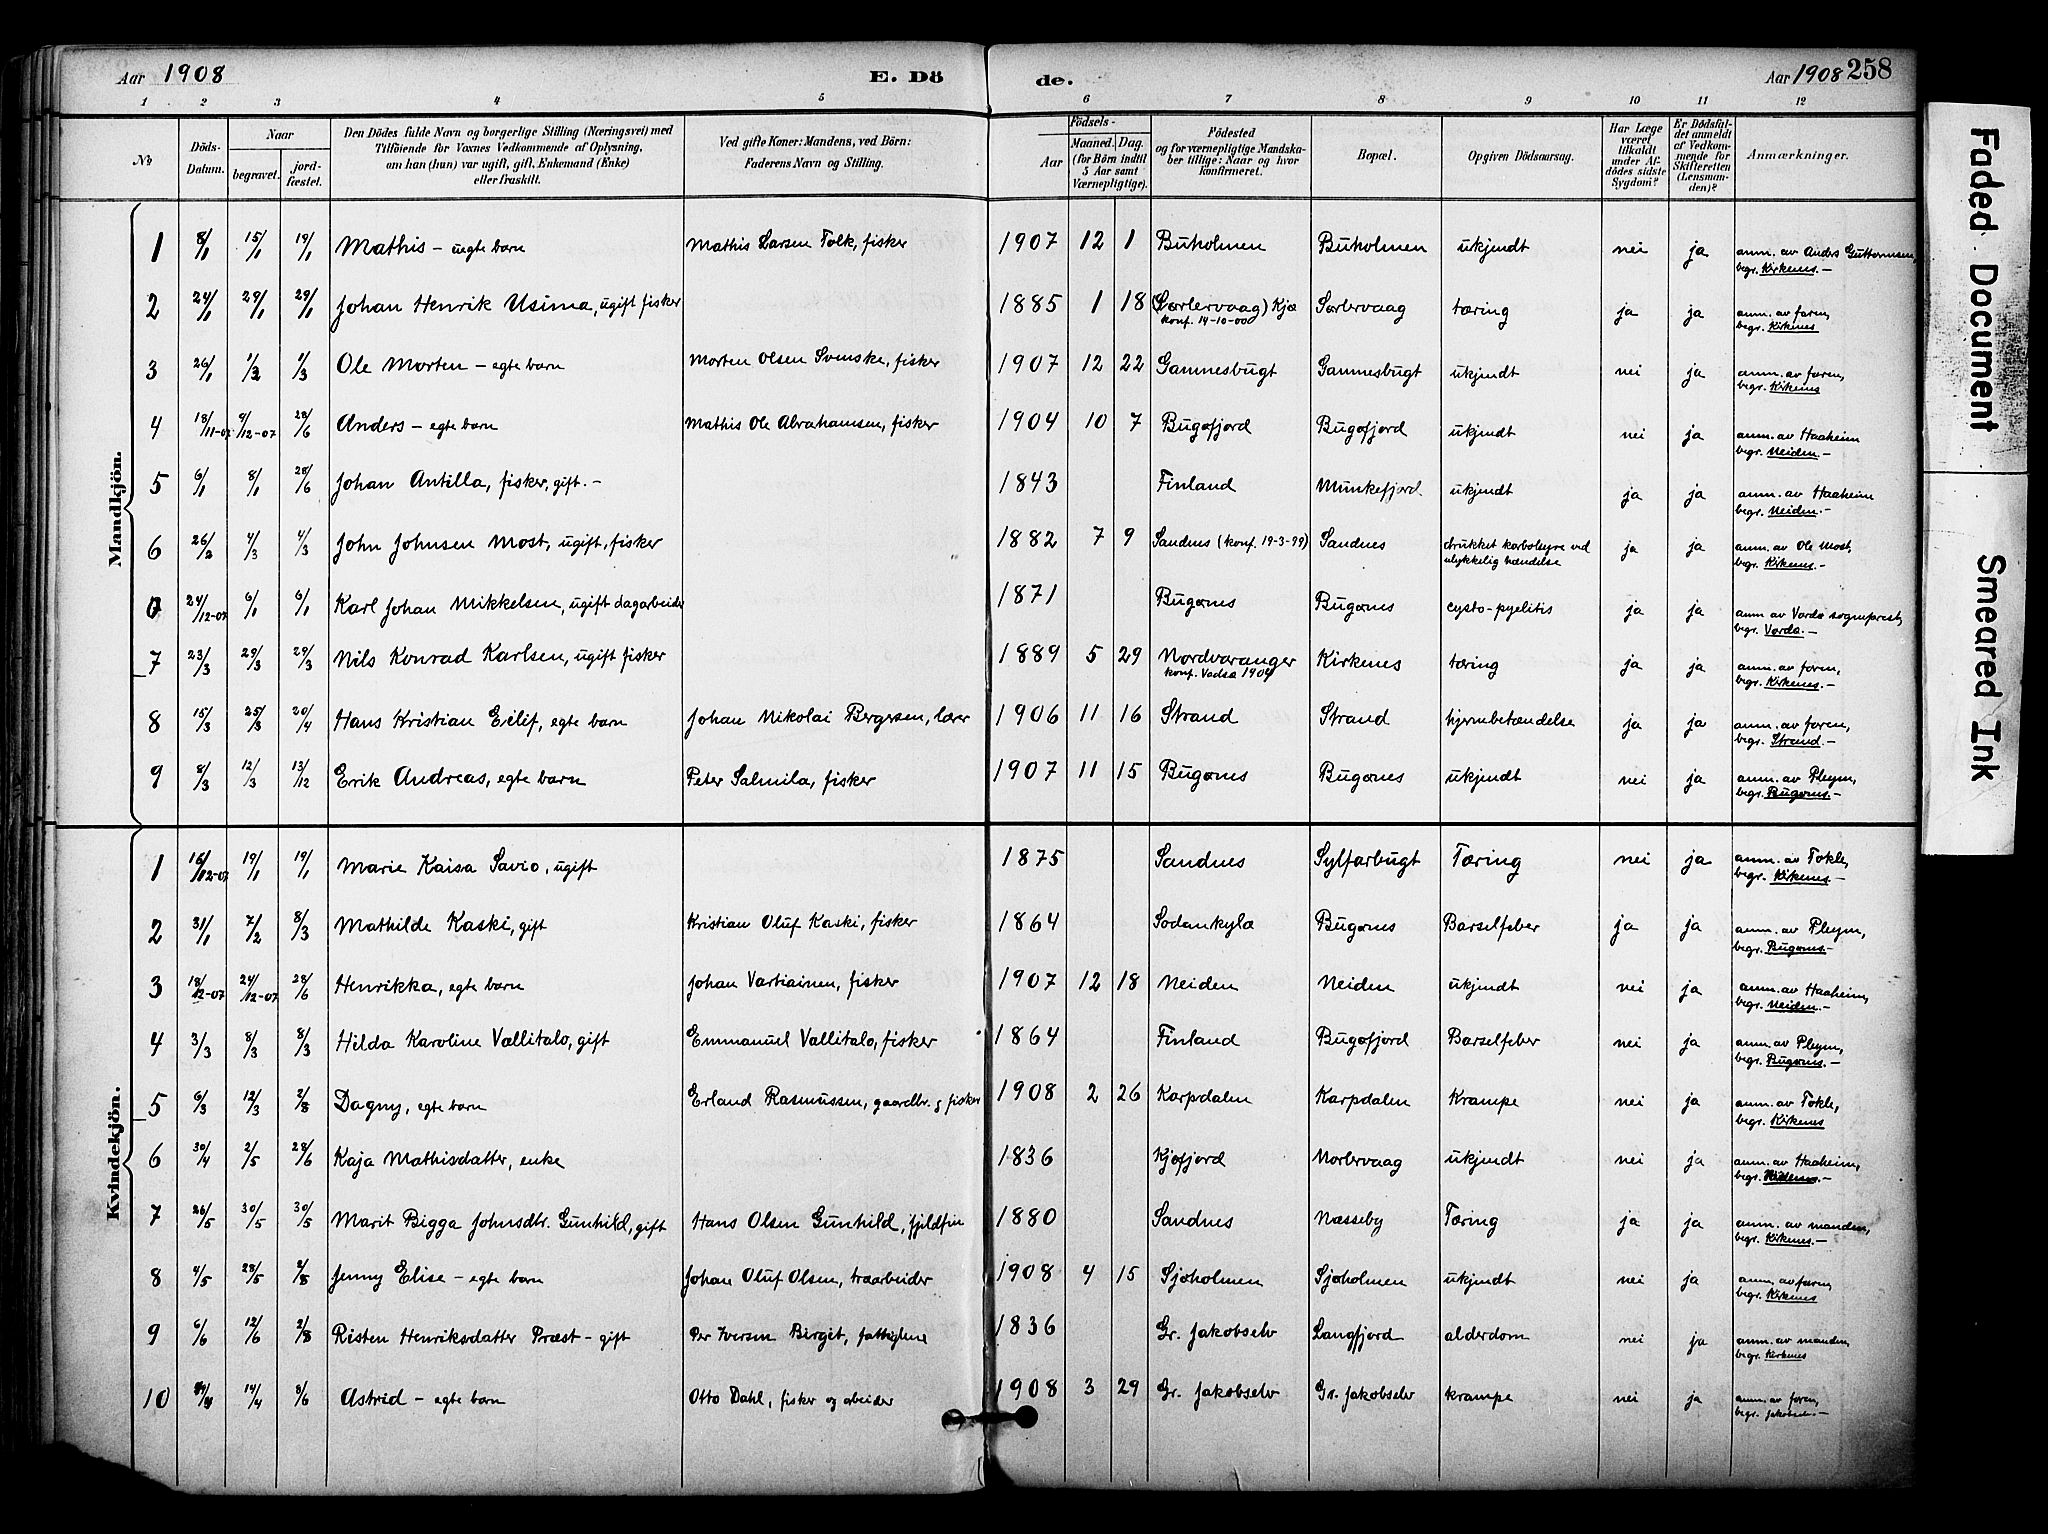 Aar 1908 E. Dö de. Aar 1908 258
1 2 3 4 5 6 7 8 9 10 11 12
No
Döds-Datum.
Naar
begravet.
jord-fæstet.
Den Dödes fulde Navn og borgerlige Stilling (Næringsvei) med
Tilföiende for Voxnes Vedkommende af Oplysning,
om han (hun) var ugift, gift, Enkemand (Enke)
eller fraskilt.
Ved gifte Koner: Mandens, ved Börn:
Faderens Navn og Stilling.
Födsels-
Aar
Maaned. Dag.
(for Börn indtil
5 Aar samt
Værnepligtige).
Födested
og for værnepligtige Mandska-
ber tillige: Naar og hvor
konfirmeret.
Bopæl.
Opgiven Dödsaarsag.
Har Læge
været
tilkaldt
under Af-
dödes sidste
Sygdom?
Er Dödsfal-
det anmeldt
af Vedkom-
mende for
Skifteretten
(Lensman-
den)?
Anmærkninger.
Mandkjön.
1 8/1 15/1 19/1 Mathis – uegte barn Mathis Larsen Folk, fisker 1907 12 1 Buholmen Buholmen ukjendt nei ja anm. av Anders Guttormsen,
begr. Kirkenes.–
2 24/1 29/1 29/1 Johan Henrik Usima, ugift fisker 1885 1 18 (Sørlervaag) Kjø Sørlervaag tæring ja ja anm. av faren,
konf. 14-10-00 begr. Kirkenes
3 26/1 1/3 1/3 Ole Morten – egte barn Morten Olsen Svenske, fisker 1907 12 22 Gamnesbugt Gamnesbugt ukjendt nei ja anm. av faren,
begr. Kirkenes
4 18/11-07 9/12-07 28/6 Anders – egte barn Mathis Ole Abrahamsen, fisker 1904 10 7 Bugøfjord Bugøfjord ukjendt nei ja anm. av Haaheim
begr. Neiden.–
5 6/1 8/1 28/6 Johan Antilla, fisker, gift.– 1843 Finland Munkefjord ukjendt ja ja anm. av Haaheim
begr. Neiden.–
6 26/2 4/3 4/3 John Johnsen Most, ugift, fisker 1882 7 9 Sandnes (konf. 19-3-99) Sandnes drukket karbolsyre ved ja ja anm. av Ole Most,
ulykkelig hændelse begr. Kirkenes.–
0 24/12-07 6/1 6/1 Karl Johan Mikkelsen, ugift dagarbeider 1871 Bugønes Bugønes cysto-pyelitis ja ja anm av Vardø sogneprest,
begr. Vardø.–
7 23/3 29/3 29/3 Nils Konrad Karlsen, ugift fisker 1889 5 29 Nordvaranger Kirkenes tæring ja ja anm. av faren,
konf. Vadsø 1904 begr. Kirkenes.–
8 15/3 25/3 20/4 Hans Kristian Eilif, egte barn Johan Nikolai Bergersen, lærer 1906 11 16 Strand Strand hjernebetændelse ja ja anm. av faren,
begr. Strand.–
9 8/3 12/3 13/12 Erik Andreas, egte barn Peter Salmila, fisker 1907 11 15 Bugønes Bugønes ukjendt nei ja anm. av Pleym,
begr. Bugønes.–
Kvindekjön.
1 16/12-07 19/1 19/1 Marie Kaisa Savio, ugift 1875 Sandnes Sylfarbugt Tæring nei ja anm. av Tokle,
begr. Kirkenes.–
2 31/1 7/2 8/3 Mathilde Kaski, gift Kristian Oluf Kaski, fisker 1864 Sodankylä Bugønes Barselfeber ja ja anm. av Pleym,
begr. Bugønes.–
3 18/12-07 24/12-07 28/6 Henrikka, egte barn Johan Vartiainen, fisker 1907 12 18 Neiden Neiden ukjendt nei ja anm. av Haaheim,
begr. Neiden.–
4 3/3 8/3 8/3 Hilda Karoline Vallitalo, gift Emmanuel Vallitalo, fisker 1864 Finland Bugøfjord Barselfeber nei ja anm. av Pleym,
begr. Bugønes.–
5 6/3 12/3 2/8 Dagny, egte barn Erland Rasmussen, gaardbr. og fisker 1908 2 26 Karpdalen Karpdalen Krampe nei ja anm. av Tokle,
begr. Kirkenes
6 30/4 2/5 28/6 Kaja Mathisdatter, enke 1836 Kjøfjord Norlervaag ukjendt nei ja anm. av Haaheim,
begr.
7 26/5 30/5 30/5 Marit Bigga Johnsdtr. Gunhild, gift Hans Olsen Gunhild, fjeldfin 1880 Sandnes Næsseby Tæring ja ja anm. av manden,
begr. Kirkenes.–
8 4/5 28/5 2/8 Jenny Elise – egte barn Johan Oluf Olsen, træarbeider 1908 4 15 Sjøholmen Sjøholmen ukjendt nei ja anm. av faren,
begr. Kirkenes
9 6/6 12/6 2/8 Risten Henriksdatter Præst – gift Per Iversen Birget, fattiglem 1836 Gr. Jakobselv Langfjord alderdom nei ja anm. av manden,
begr. Kirkenes
10 14/4 8/6 Astrid – egte barn Otto Dahl, fisker og arbeider 1908 3 29 Gr. Jakobselv Gr. Jakobselv krampe nei ja anm. av faren,
begr. Jakobselv.–
Faded Document
Smeared Ink